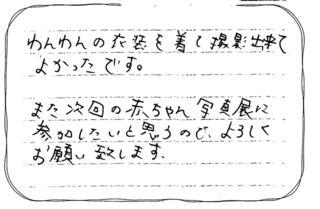 わんわんの衣装を着て撮影出来て
よかったです。
また次回の赤ちゃん写真展に
参加したいと思うので、よろしく
お願い致します.